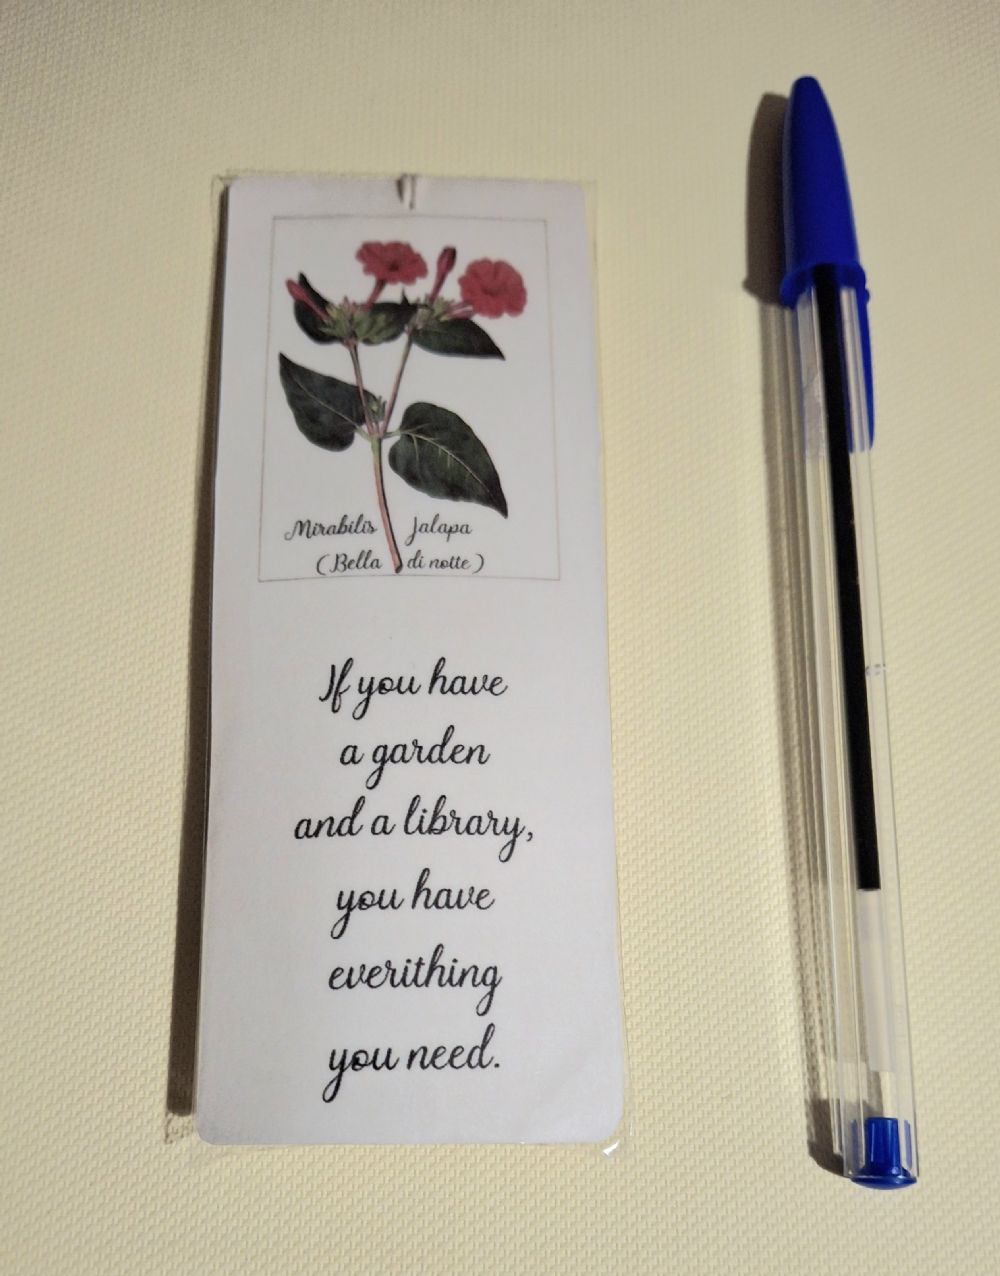 Mirabilis Jalapa
(Bella di notte)
If you have
a garden
and a library,
you have
everithing
you need.